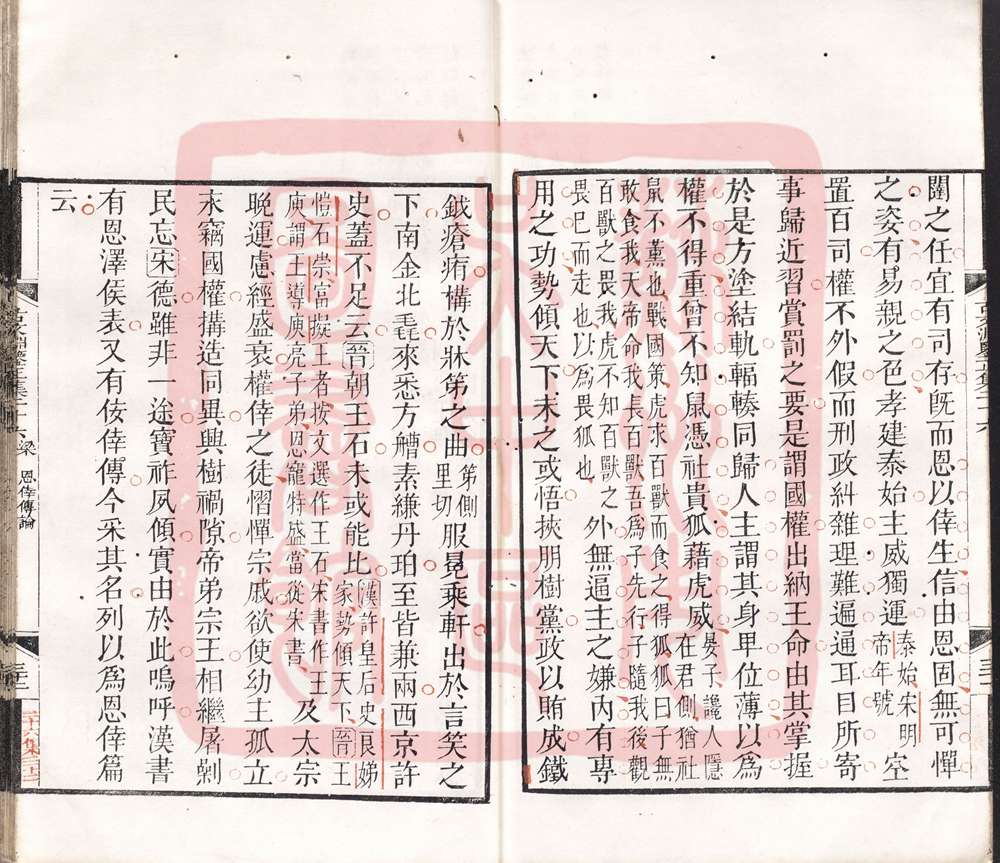 闥之任宜有司存旣而恩以倖生信由恩固無可憚
之姿有易親之色孝建泰始主威獨運泰始宋明帝年號空
置百司權不外假而刑政糾雜理難遍通耳目所寄
事歸近習賞罰之要是謂國權出納王命由其掌握
於是方塗結軌輻輳同歸人主謂其身卑位薄以爲
權不得重曾不知鼠憑社貴狐藉虎威晏子讒人隱在君側猶社
鼠不薰也戰國策虎求百獸而食之得狐狐曰子無
敢食我天帝命我長百獸吾爲子先行子隨我後觀
百獸之畏我虎不知百獸之
畏巳而走也以爲畏狐也外無逼主之嫌內有專
用之功勢傾天下未之或悟挾朋樹黨政以賄成鐵
鉞瘡痏構於牀笫之曲笫側里切服冕乘軒出於言笑之
下南金北毳來悉方艚素縑丹珀至皆兼兩西京許
史蓋不足云晉朝王石未或能比漢許皇后史良娣家勢傾天下晉王
愷石崇富擬王者按文選作王石宋書作王
庾謂王導庾亮子弟恩寵特盛當從宋書及太宗
晩運慮經盛衰權倖之徒慴憚宗戚欲使幼主孤立
永竊國權搆造同異興樹禍隙帝弟宗王相繼屠剿
民忘宋德雖非一途寶祚夙傾實由於此嗚呼漢書
有恩澤侯表又有佞倖傳今采其名列以爲恩倖篇
云
梁 恩倖傳論